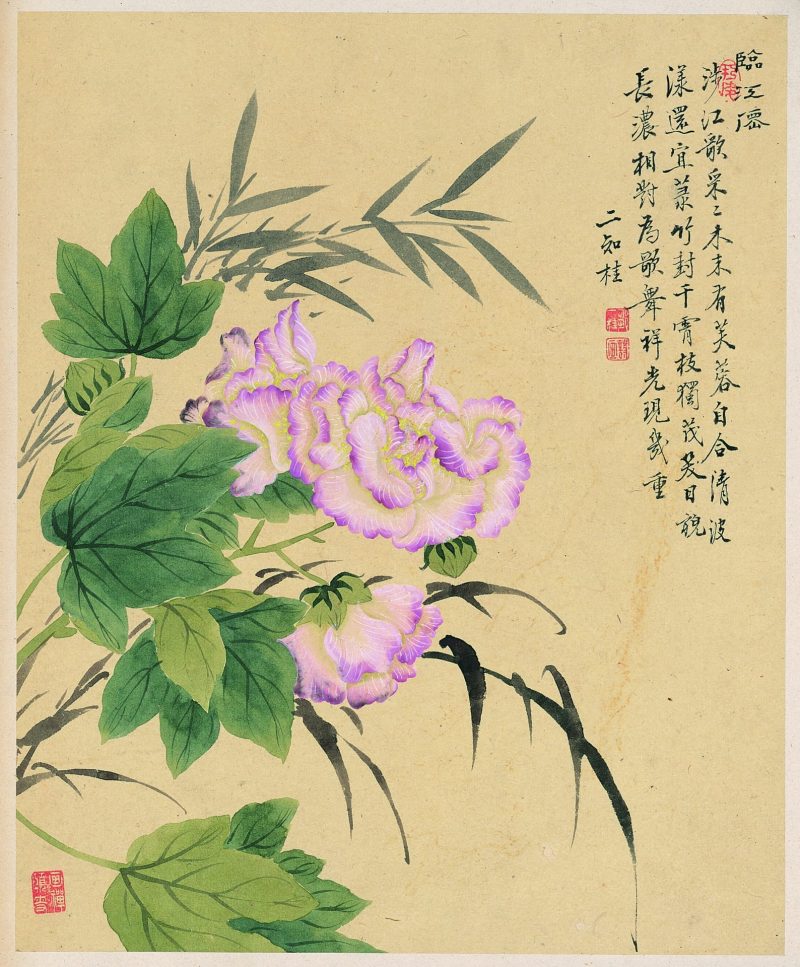 臨江僊
涉江歌采〻木末有芙蓉自合清波
漾還宜菉竹封干霄枝獨茂笑日貌
長濃相對為歌舞祥光現幾重
二知桂